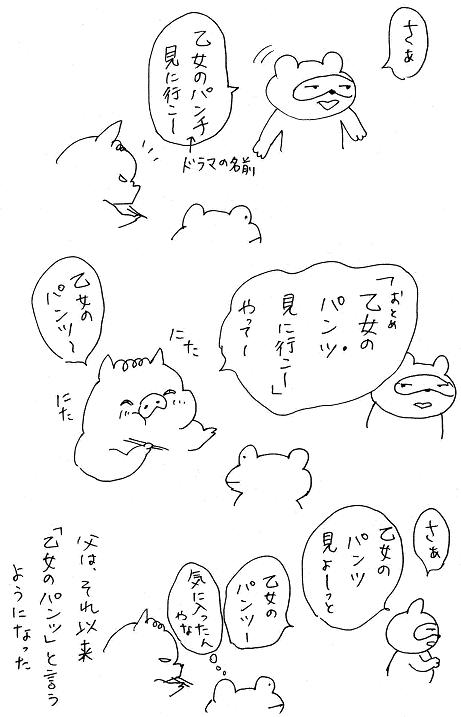 さぁ
乙女のパンチ
見に行こー
ドラマの名前
「おとめ
乙女の
パンツ
見に行こー」
やってー
乙女の
パンツ〜
にた
にた
さぁ
乙女の
パンツ
見よーっと
乙女の
パンツー
気に入ったん
やな
父は、それ以来
「乙女のパンツ」と言う
ようになった